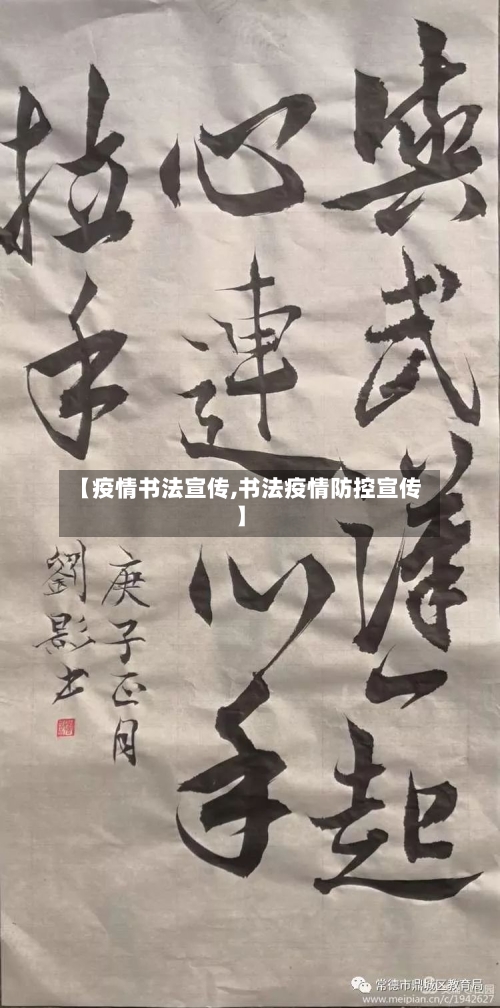 與武漢一起
心連心手
拉手
庚子正月
劉影书
【疫情书法宣传,书法疫情防控宣传
】
常德市鼎城区教育局
www.meipian.cn/c/1942627